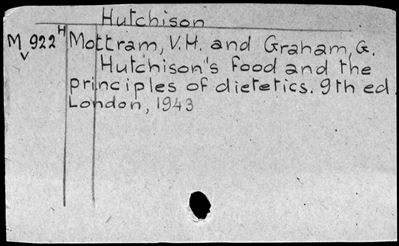 Hutchison
Mv922H Mottram, V.H. and Graham, G.
Hutchison's food and the
principles of dietetics. 9th ed.
London, 1943